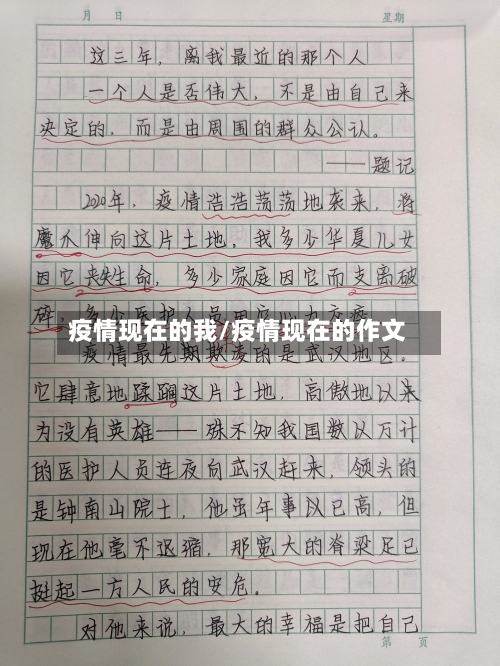 月 日 星期
这三年，离我最近的那个人
一个人是否伟大，不是由自己来
决定的，而是由周围的群众公认。
——题记
2020年，疫情浩浩荡荡地袭来，将
魔爪伸向这片土地，我多少华夏儿女
因它丧失生命，多少家庭因它而支离破
碎，多少医护人员
疫情现在的我/疫情现在的作文
疫情最先期欺凌的是武汉地区。
它肆意地蹂躏这片土地，高傲地以来
为没有英雄——殊不知我国数以万计
的医护人员连夜向武汉赶来，领头的
是钟南山院士，他虽年事以已高，但
现在他毫不退缩，那宽大的脊梁足已
挺起一方人民的安危。
对他来说，最大的幸福是把自己
第 页